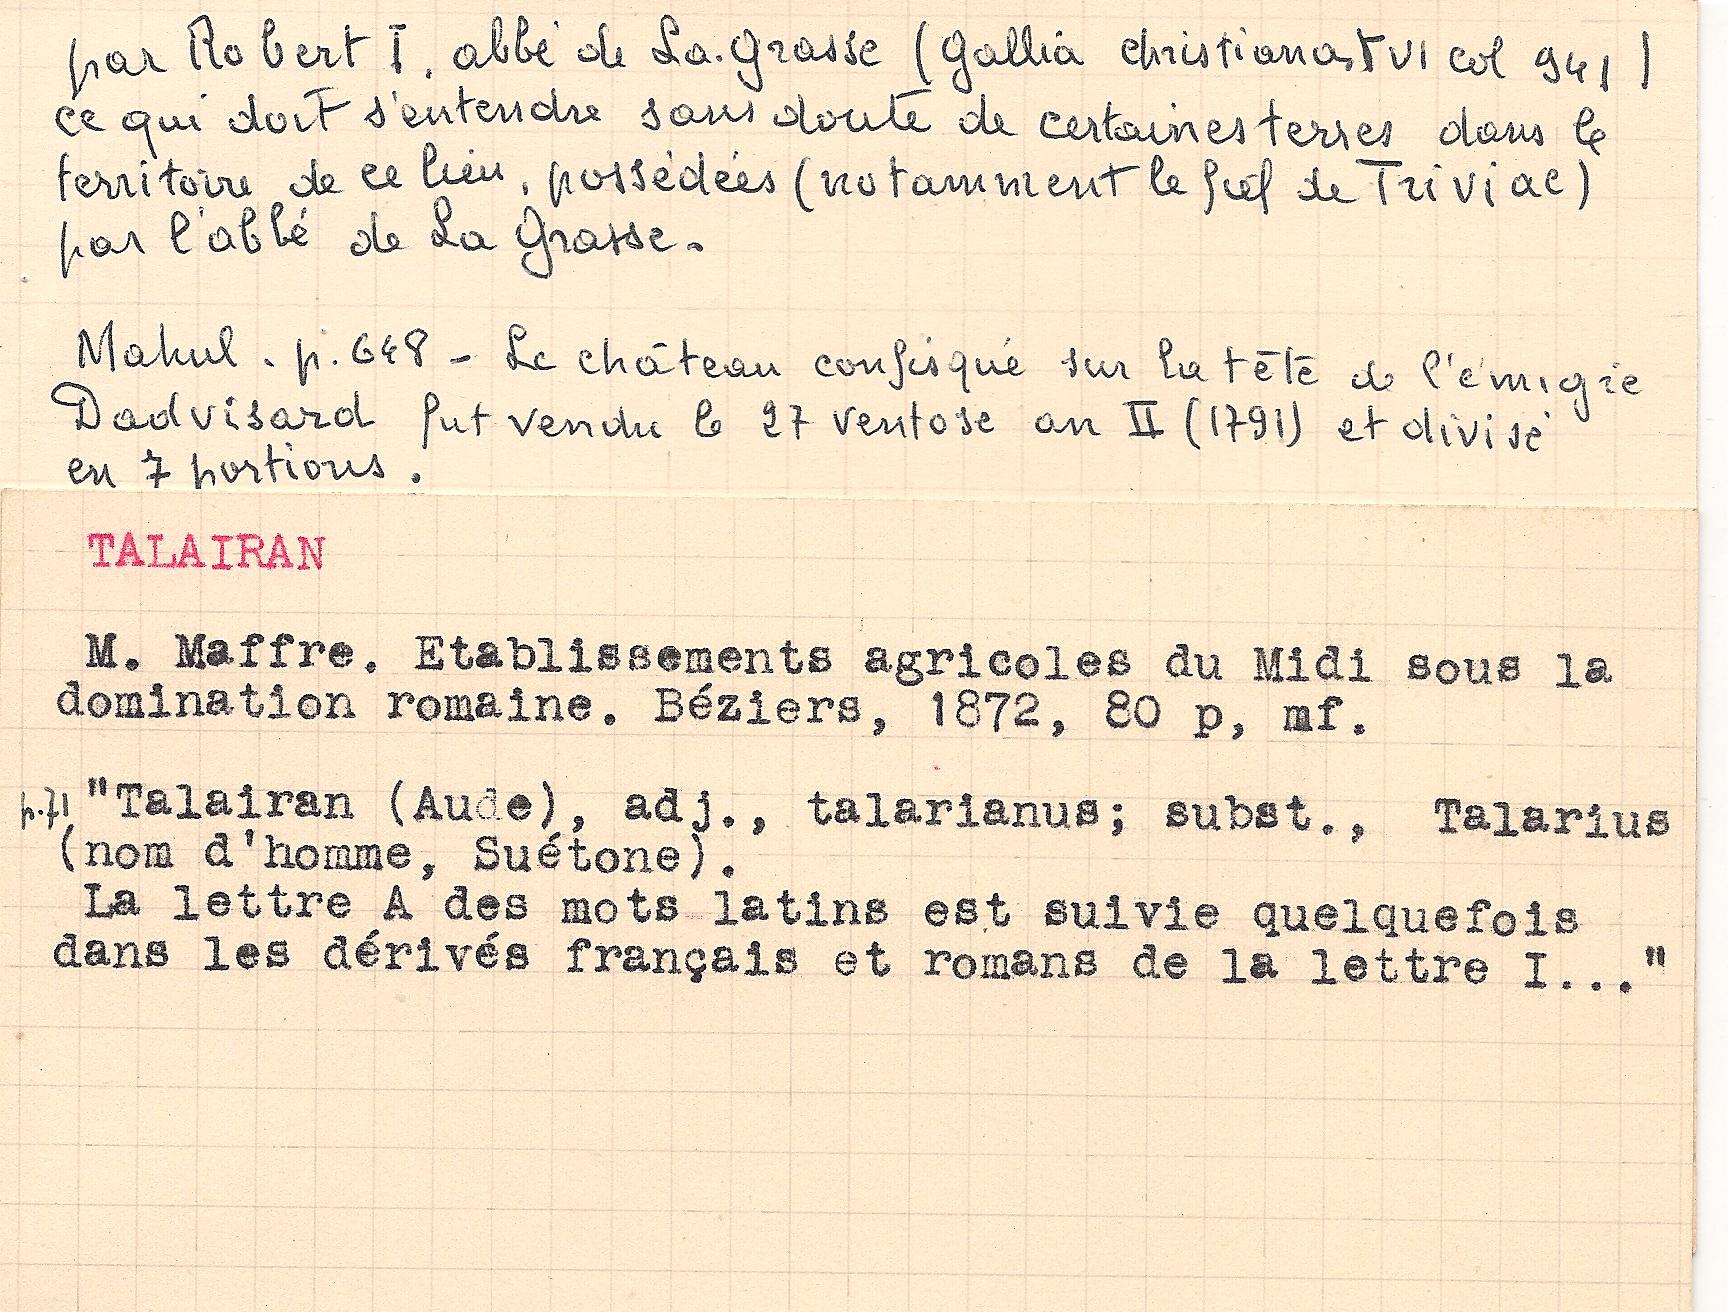 par Robert I, abbé de La.Grasse (Gallia christiana, T VI col 941)
ce qui doit s'entendre sans doute de certaines terres dans le
territoire de ce lieu, possédées (notamment le fief de Triviac)
par l'abbé de La Grasse.
Mahul. p. 648 - Le château confisqué sur la tête de l'émigré
Dadvisard fut vendu le 27 ventose an II (1791) et divisé
en 7 portions.
TALAIRAN
M. Maffre. Etablissements agricoles du Midi sous la
domination romaine. Béziers, 1872, 80 p, mf.
p.71 "Talairan (Aude), adj., talarianus; subst., Talarius
(nom d'homme, Suétone).
La lettre A des mots latins est suivie quelquefois
dans les dérivés français et romans de la lettre I..."